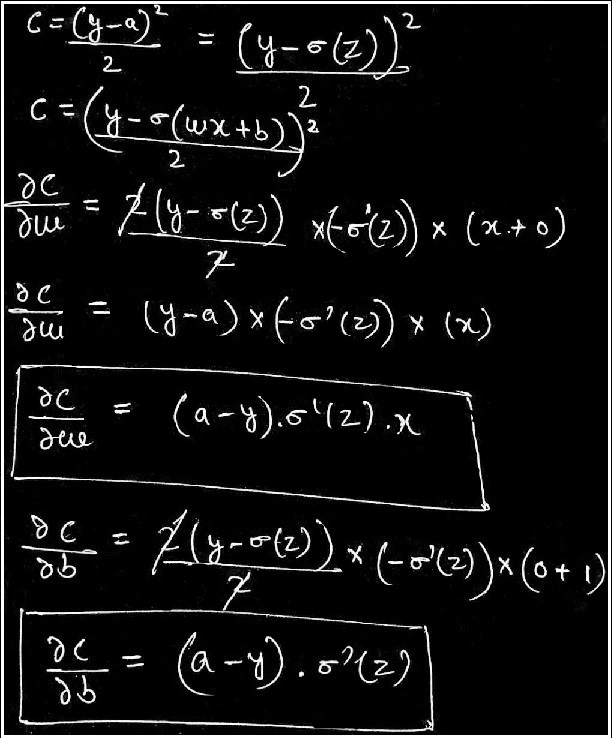 C = (y-a)²/2 = (y-σ(z))²/2
C = (y-σ(wx+b))²/2
∂C/∂w = 2(y-σ(z))/2 × (-σ'(z)) × (x+0)
∂C/∂w = (y-a) × (-σ'(z)) × (x)
∂C/∂w = (a-y).σ'(z).x
∂C/∂b = 2(y-σ(z))/2 × (-σ'(z)) × (0+1)
∂C/∂b = (a-y).σ'(z)